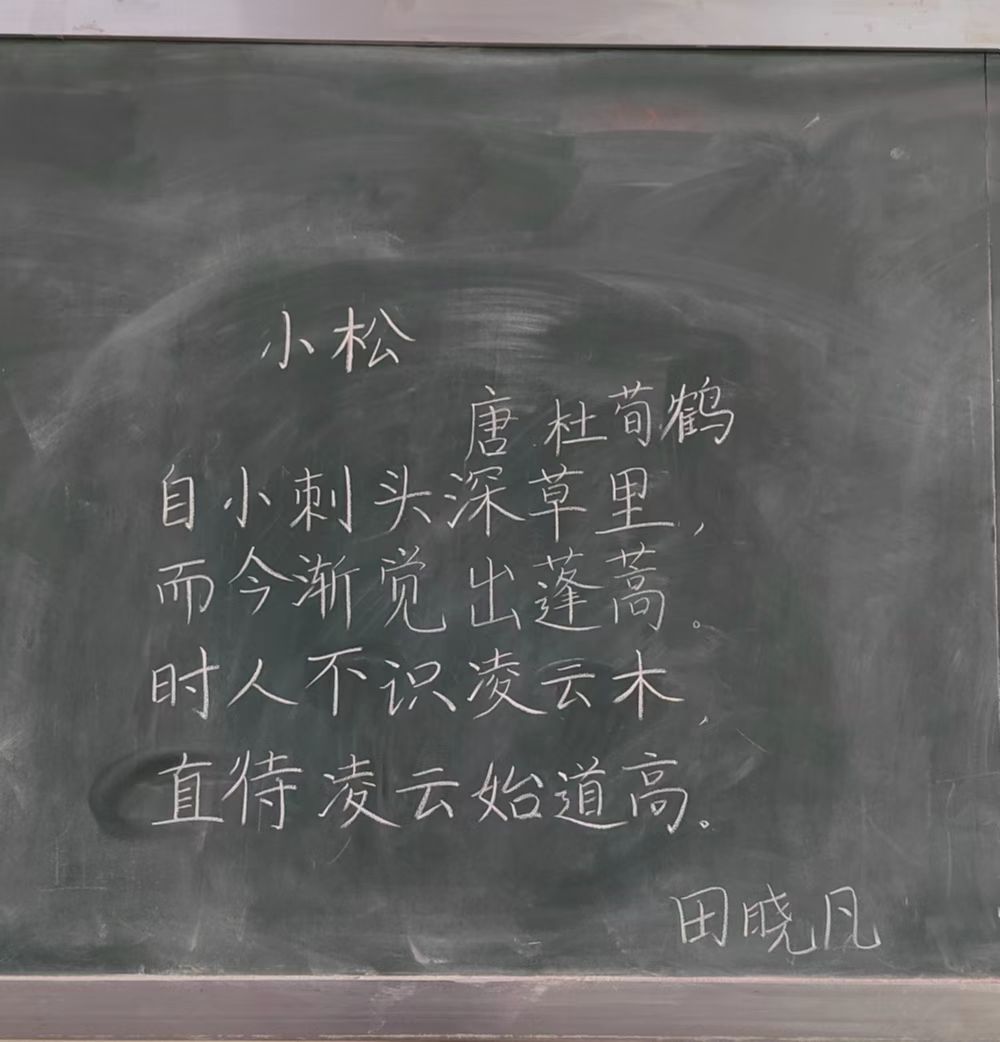 小松
唐 杜荀鹤
自小刺头深草里，
而今渐觉出蓬蒿。
时人不识凌云木，
直待凌云始道高。
田晓凡